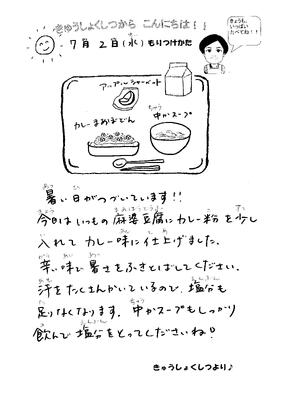 きゅうしょくしつから こんにちは!!
きょうも、
いっぱい
たべてね!!
7月 2日(水) もりつけかた
アップルシャーベット
カレーまあぼどん
中かスープ
暑い日がつづいています!!
今日はいつもの麻婆豆腐にカレー粉を少し
入れてカレー味に仕上げました。
辛い味で暑さをふきとばしてください。
汗をたくさんかいているので、塩分も
足りなくなります。中かスープもしっかり
飲んで塩分をとってくださいね!
きゅうしょくしつより♪